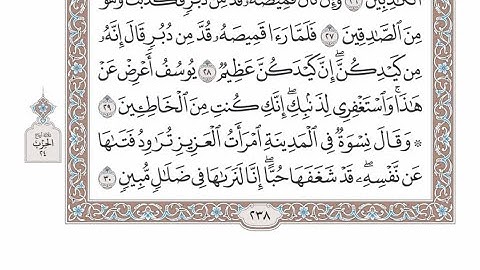 ٱلۡكَٰذِبِينَ ٢٦ وَإِن كَانَ قَمِيصُهُۥ قُدَّ مِن دُبُرٖ فَكَذَبَتۡ وَهُوَ
مِنَ ٱلصَّٰدِقِينَ ٢٧ فَلَمَّا رَءَا قَمِيصَهُۥ قُدَّ مِن دُبُرٖ قَالَ إِنَّهُۥ
مِن كَيۡدِكُنَّۖ إِنَّ كَيۡدَكُنَّ عَظِيمٞ ٢٨ يُوسُفُ أَعۡرِضۡ عَنۡ
هَٰذَاۚ وَٱسۡتَغۡفِرِي لِذَنۢبِكِۖ إِنَّكِ كُنتِ مِنَ ٱلۡخَاطِـِٔينَ ٢٩
۞ وَقَالَ نِسۡوَةٞ فِي ٱلۡمَدِينَةِ ٱمۡرَأَتُ ٱلۡعَزِيزِ تُرَٰوِدُ فَتَىٰهَا
عَن نَّفۡسِهِۦۖ قَدۡ شَغَفَهَا حُبًّاۖ إِنَّا لَنَرَىٰهَا فِي ضَلَٰلٖ مُّبِينٖ ٣٠
ٱلۡحِزۡب
٢٤
٢٣٨